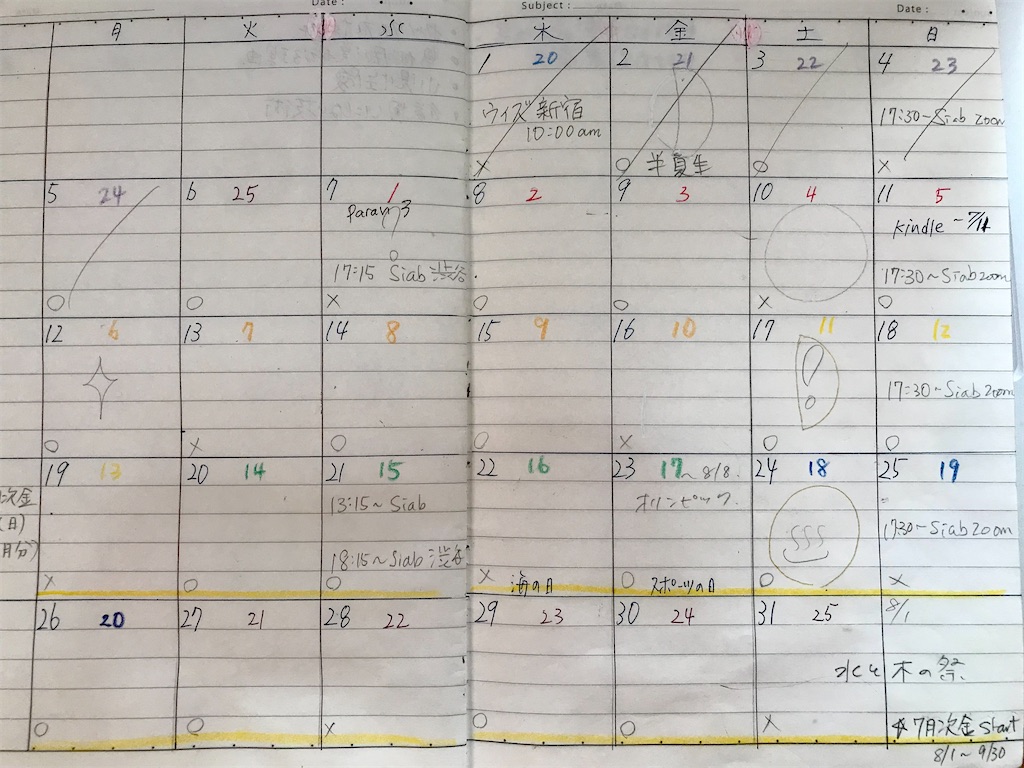 Date :
Subject :
Date :
月 火 水 木 金 土 日
1 20 2 21 3 22 4 23
ウィズ新宿
10:00am
17:30~Siab zoom
× ○ 半夏生 ○ ×
5 24 6 25 7 1 8 2 9 3 10 4 11 5
Kindle ~7/11
17:15 Siab 渋谷
17:30~Siab zoom
○ ○ × ○ ○ × ○
12 6 13 7 14 8 15 9 16 10 17 11 18 12
17:30~Siab zoom
○ × ○ ○ × ○ ○
19 13 20 14 21 15 22 16 23 17~8/8. 24 18 25 19
次金
(日)
月分)
13:15~Siab
オリンピック.
17:30~Siab zoom
18:15~Siab 渋谷
× ○ ○ × 海の日 ○ スポーツの日 ○ ×
26 20 27 21 28 22 29 23 30 24 31 25 8/1
水と木の祭.
○ ○ × ○ ○ × 7月次金 Start
8/1~9/30